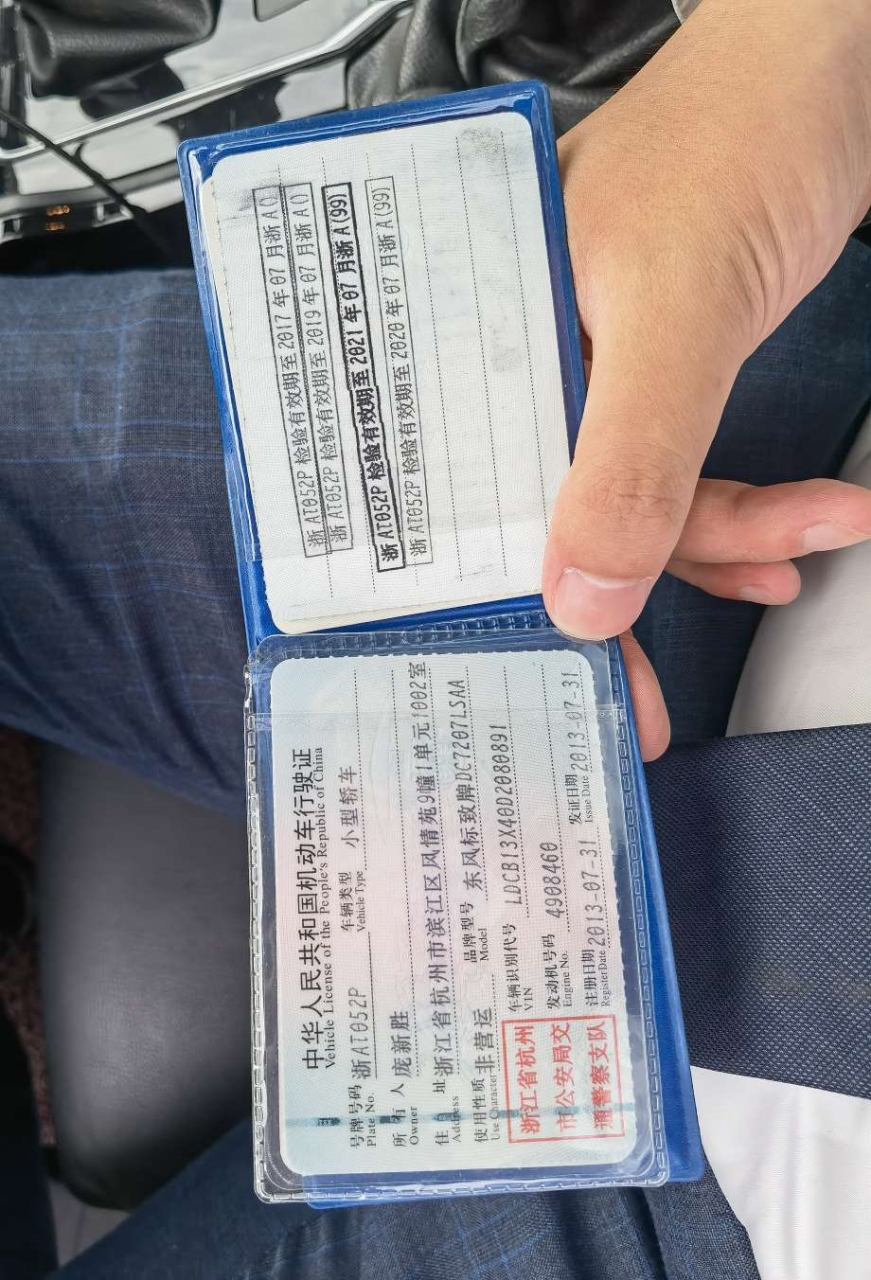 浙AT052P 检验有效期至2017年07月浙A()
浙AT052P 检验有效期至2019年07月浙A()
浙AT052P 检验有效期至2021年07月浙A(99)
浙AT052P 检验有效期至2020年07月浙A(99)
中华人民共和国机动车行驶证
Vehicle License of the People's Republic of China
号牌号码 浙AT052P 车辆类型 小型轿车
Plate No. Vehicle Type
所有人 庞新胜
Owner
住址 浙江省杭州市滨江区风情苑9幢1单元1002室
Address
使用性质 非营运 品牌型号 东风标致牌DC7207LSAA
Use Character Model
浙江省杭州
市公安局交
通警察支队
车辆识别代号 LDCB13X40D2080891
VIN
发动机号码 4908460
Engine No.
注册日期 2013-07-31 发证日期 2013-07-31
RegisterDate Issue Date